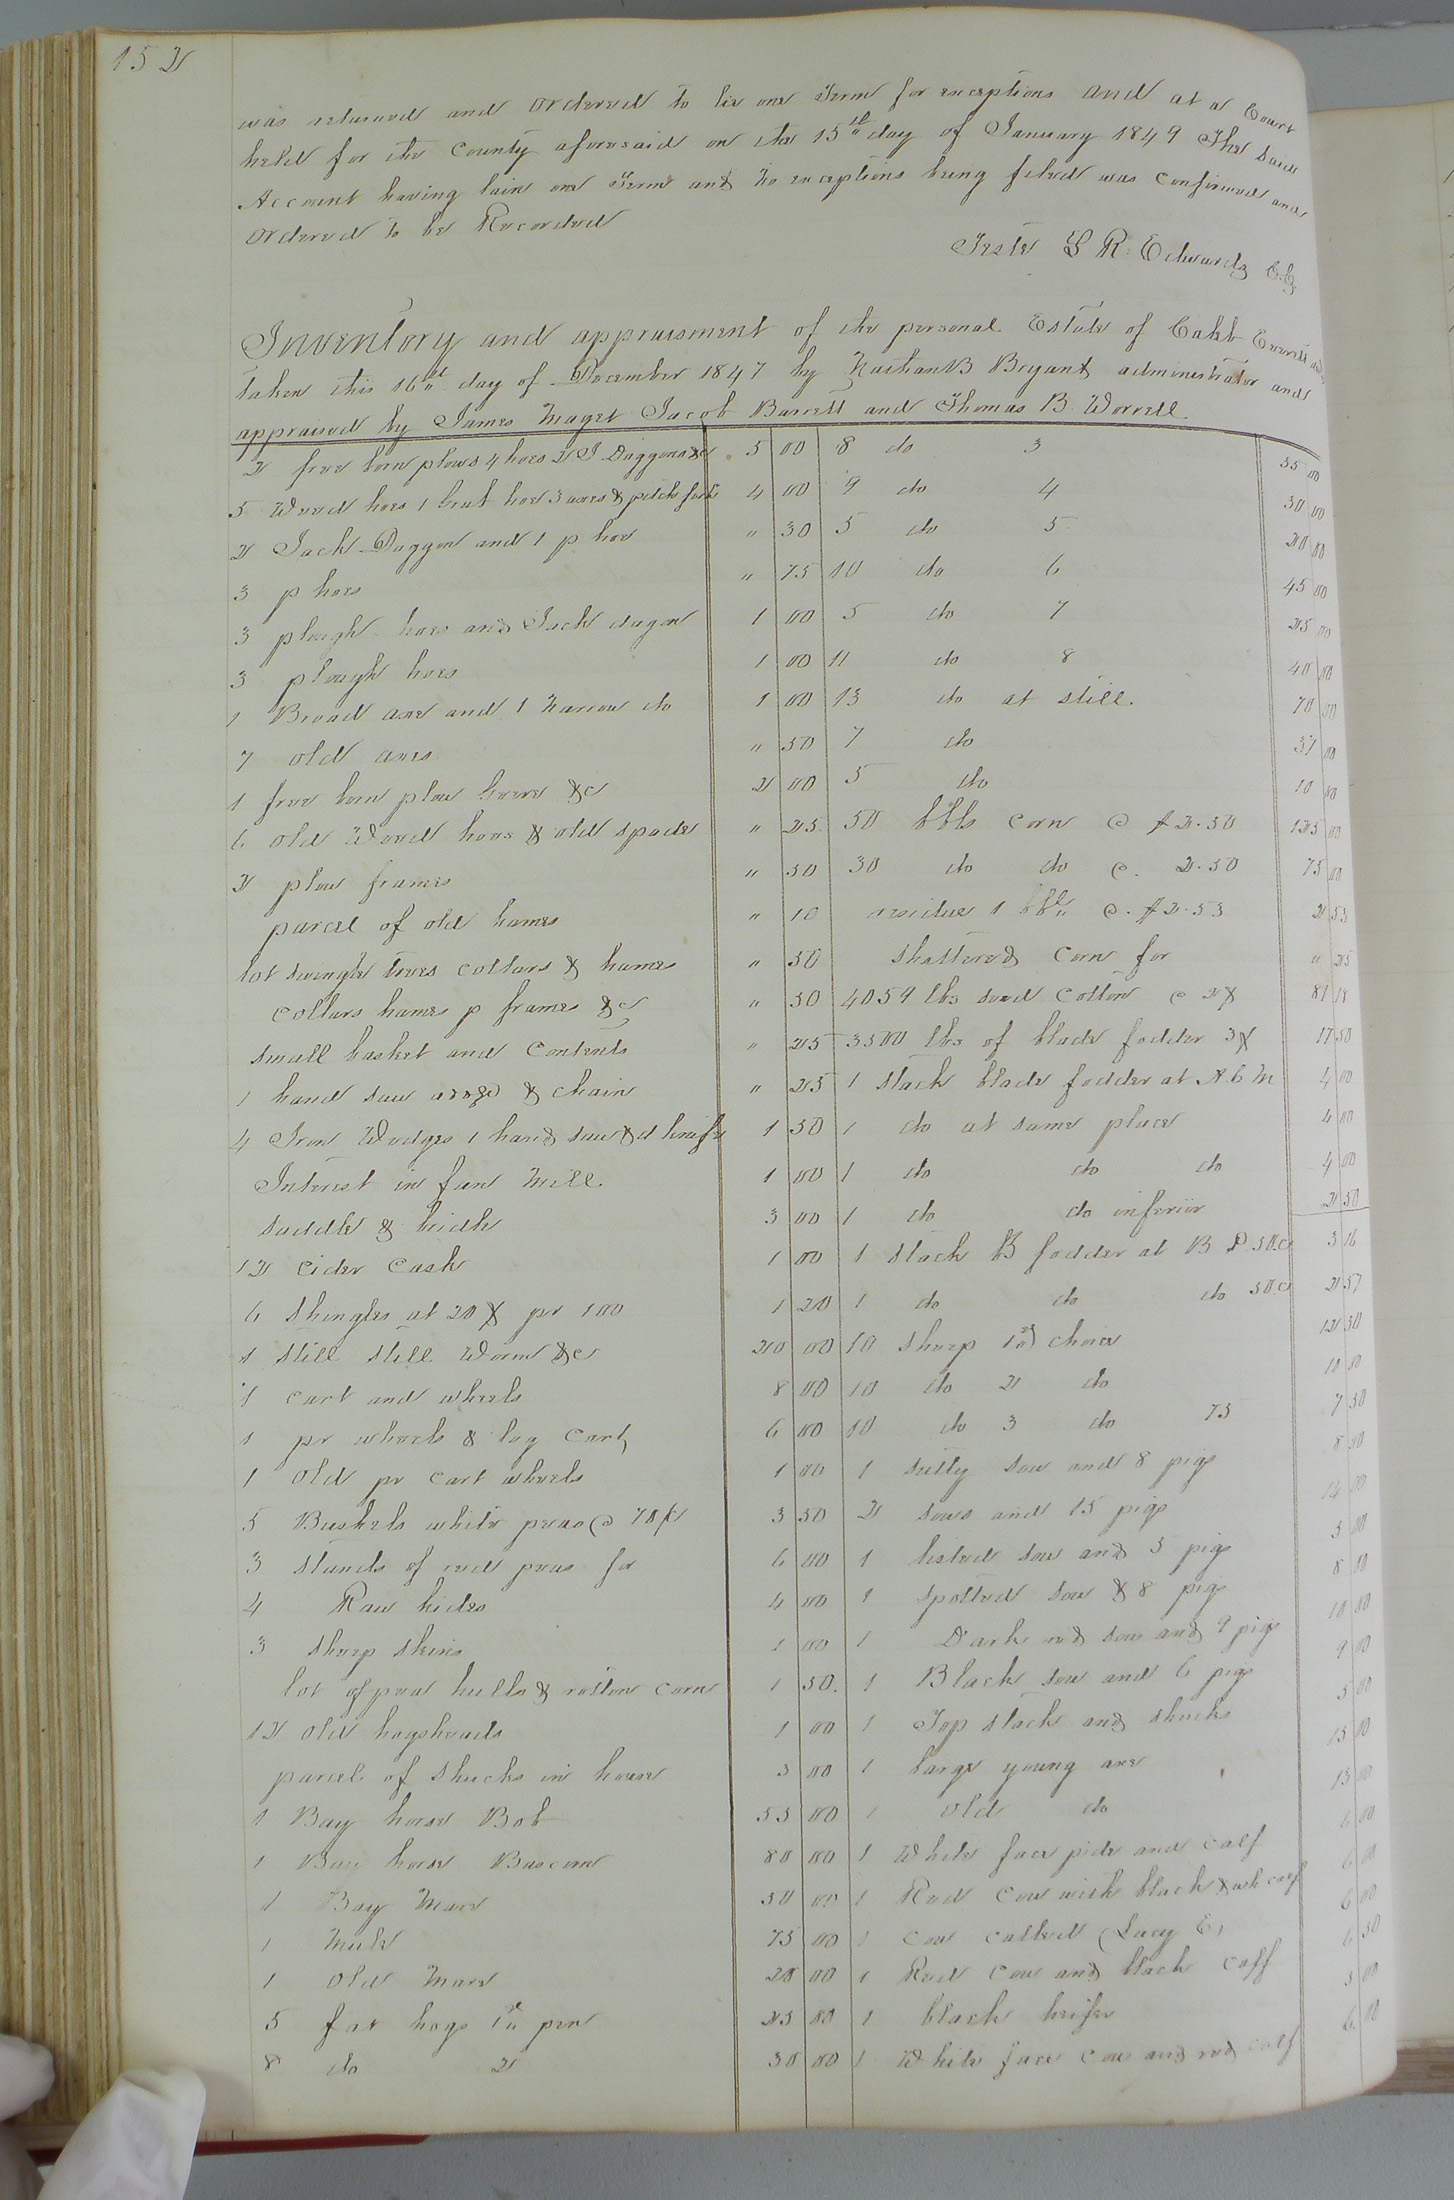 152
was returned and ordered to lie one Term for exceptions and at a Court
held for the County aforesaid on the 15th day of January 1849 The said
Account having lain one Term and no exceptions being filed was confirmed and
ordered to be Recorded
Teste L R. Edwards C.C.
Inventory and appraisment of the personal Estate of
taken this 16th day of December 1847 by Nathan B Bryant administrator and
appraised by James Maget Jacob Barrett and Thomas B Worrell.
2 free born plows 4 hoes 2 J Daggons &c 5 00
5 Weed hoes 1 grub hoe 3 axes & pitch fork 4 00
2 Jack Daggon and 1 p hoe " 30
3 p hoes " 75
3 plough hoes and Jack dagon 1 00
3 plough hoes 1 00
1 Broad axe and 1 narrow do 1 00
7 old axes " 50
1 free born plow &c 2 00
6 old Weed hoes & old spade " 25
2 plow frames " 50
parcel of old hames " 10
lot swingle trees collars & hames " 50
collars hames p frames &c " 50
small basket and contents " 25
1 hand saw & chain " 25
4 Iron Wedges 1 hand saw & d knife 1 50
Interest in fan Mill. 1 00
saddle & bridle 3 00
12 cider cask 1 00
6 shingles at 20 ¢ pr 100 1 20
1 still still Worm &c 20 00
1 cart and wheels 8 00
1 pr wheels & log Cart 6 00
1 old pr cart wheels 1 00
5 Bushels white peas @ 70 ¢ 3 50
3 stands of red peas for 6 00
4 Raw hides 4 00
3 sheep skins 1 00
lot of pea hulls & rotten corn 1 50.
12 old hogsheads 1 00
parcel of shucks in house 3 00
1 Bay horse Bob 55 00
1 Bay horse 80 00
1 Bay Mare 50 00
1 Mule 75 00
1 old Mare 20 00
5 fat hogs 1st pen 25 00
8 do 2 30 00
8 do 3 35 00
9 do 4 30 00
5 do 5 20 00
10 do 6 45 00
5 do 7 25 00
11 do 8 40 00
13 do at still. 70 00
7 do 00
5 do 10 00
50 bbls corn @ $2.50 125 00
30 do do @. 2.50 75 00
residue 1 bbl @. $2.53 2 53
shattered corn for " 25
4059 lbs seed cotton @ 2 ¢ 81 18
3500 lbs of blade fodder 17 50
1 stack blade fodder at 4 00
1 do at same place 4 00
1 do do do 4 00
1 do do inferior 2 50
1 stack B fodder at B P 50c 3 16
1 do do do 50c 2 57
10 sheep 1st choice 12 50
10 do 2 do 10 00
10 do 3 do 75 7 50
1 sow and 8 pigs 8 00
2 sows and 15 pigs 14 00
1 listed sow and 5 pigs 5 00
1 spotted sow & 8 pigs 8 00
1 Dark red sow and 9 pigs 10 00
1 Black sow and 6 pigs 9 00
1 Top stack and shucks 5 00
1 large young 15 00
1 old do 13 00
1 White face and calf 6 00
1 Red cow with black & wh calf 6 00
1 cow called Lucy 6 00
1 Red cow and black calf 6 50
1 black heifer 5 00
1 White face cow and red calf 6 00